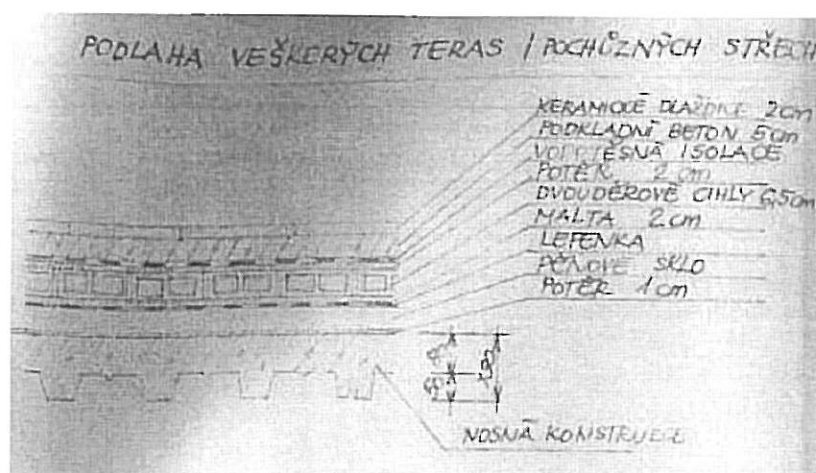 PODLAHA VEŠKERÝCH TERAS / POCHŮZNÝCH STŘECH
KERAMICKÉ DLAŽDICE 2cm
PODKLADNÍ BETON 5cm
VODOTĚSNÁ ISOLACE
POTĚR 2cm
DVOUDĚROVÉ CIHLY 6,5cm
MALTA 2cm
LEPENKA
PĚNOVÉ SKLO
POTĚR 1cm
NOSNÁ KONSTRUKCE